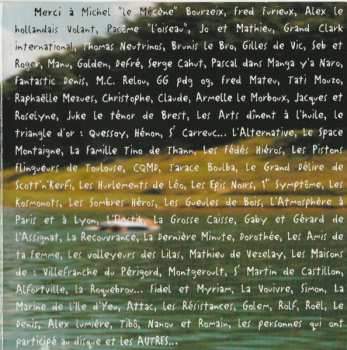 Merci à Michel "le Mécène" Bourzeix, Fred Furieux, Alex le
hollandais Volant, Pacème "l'oiseau", Jo et Mathieu, Grand Clark
international, Thomas Neutrinos, Brunis le Bro, Gilles de Vic, Seb et
Roger, Manu, Golden, Defré, Serge Cahut, Pascal dans Manga y'a Naro,
Fantastic Denis, M.C. Relou, GG pdg og, Fred Mateu, Tati Mouzo,
Raphaëlle Mezues, Christophe, Claude, Armelle le Morboux, Jacques et
Roselyne, Juke le ténor de Brest, Les Arts dînent à l'huile, le
triangle d'or : Quessoy, Hénon, S' Carreuc... L'Alternative, Le Space
Montaigne, La famille Tino de Thann, Les Fédés Hiéros, Les Pistons
flingueurs de Toulouse, CQMD, Tarace Boulba, Le Grand Délire de
Scott'n'Kerfi, Les Hurlements de Léo, Les Epis Noirs, 1° Symptôme, Les
Kosmonots, Les Sombres Héros, Les Gueules de Bois, L'Atmosphère à
Paris et à Lyon, La Grosse Caisse, Gaby et Gérard de
L'Assignat, La Recouvrance, La Dernière Minute, Dorothée, Les Amis de
ta femme, Les volleyeurs des Lilas, Mathieu de Vezelay, Les Maisons
de : Villefranche du Périgord, Montgeroult, S' Martin de Castillon,
Alfortville, la Roquebrou... Fidel et Myriam, La Vouivre, Simon, La
Marine de l'Ile d'Yeu, Attac, les Résistances, Golem, Rolf, Roël, Le
Denis, Alex lumière, Tibô, Nanou et Romain, les personnes qui ont
participé au disque et les AUTRES...